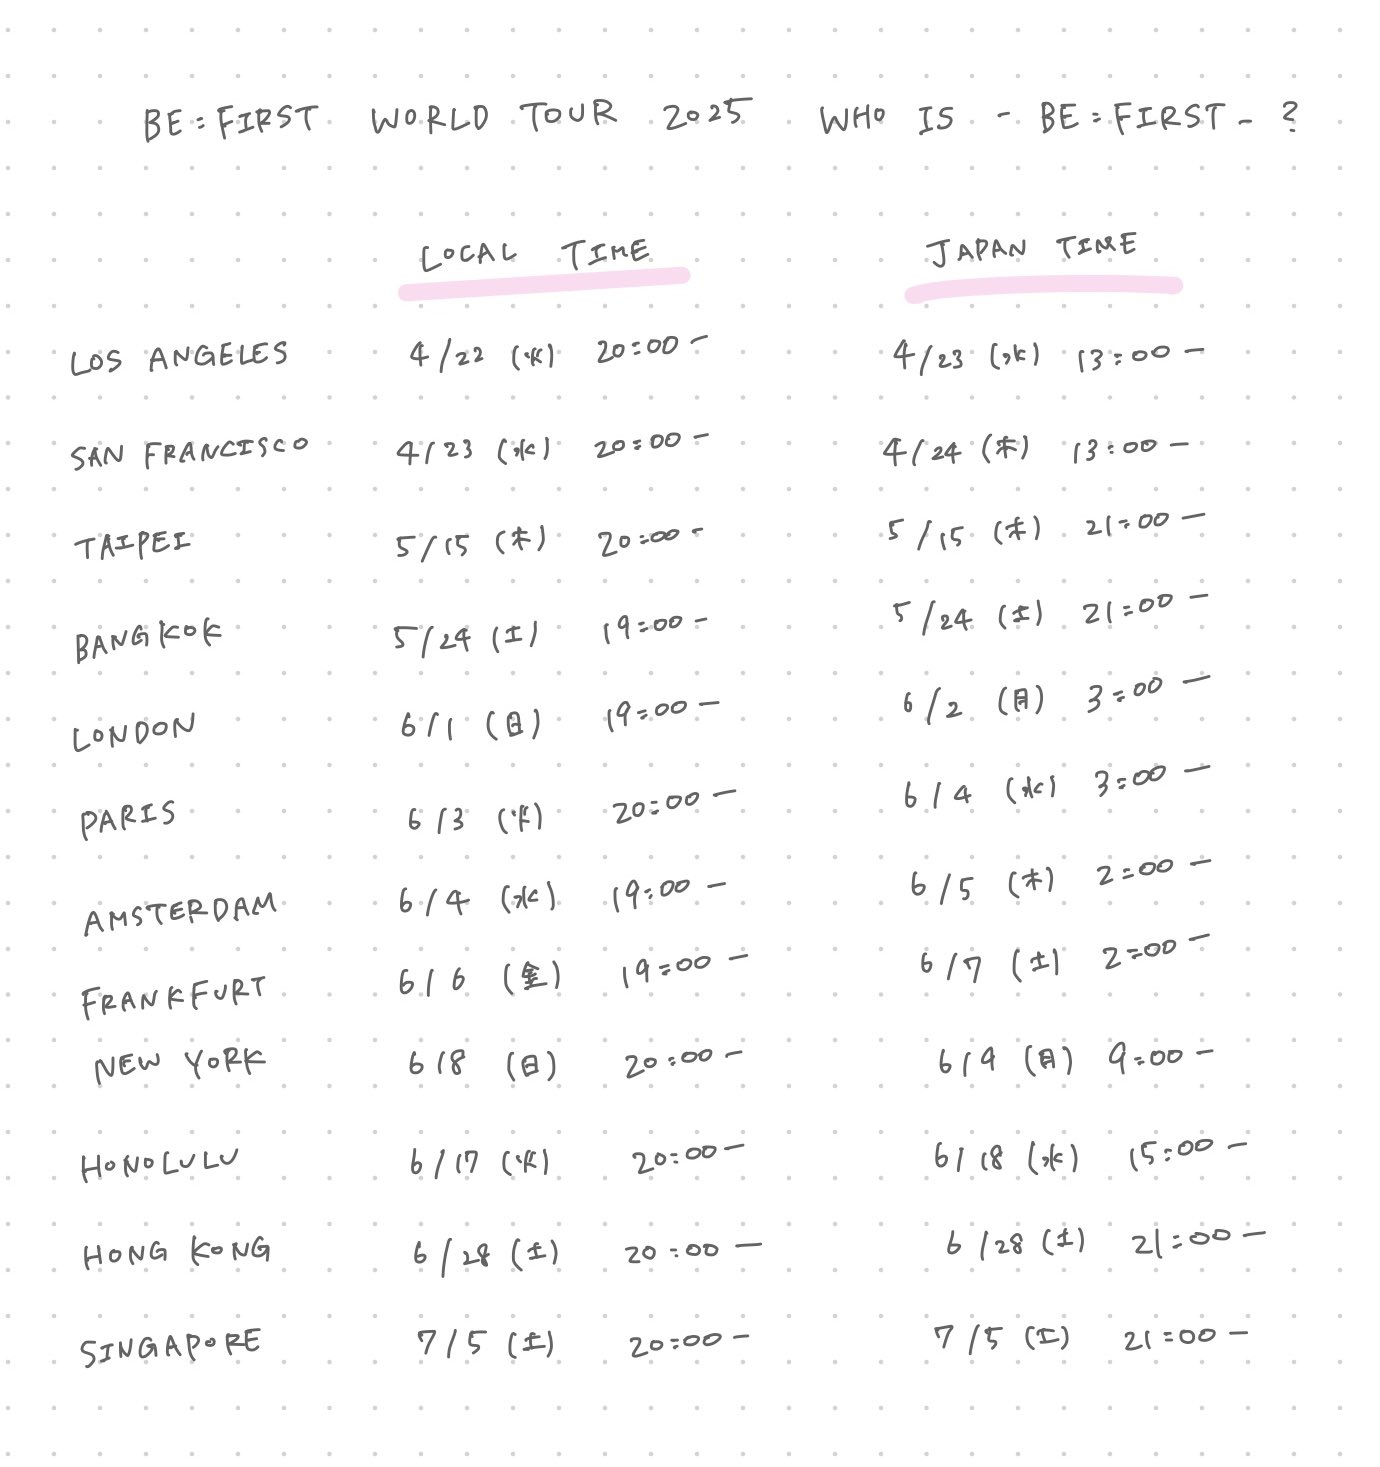 BE:FIRST WORLD TOUR 2025 WHO IS - BE:FIRST - ?
LOCAL TIME JAPAN TIME
LOS ANGELES 4/22 (火) 20:00 - 4/23 (水) 13:00 -
SAN FRANCISCO 4/23 (水) 20:00 - 4/24 (木) 13:00 -
TAIPEI 5/15 (木) 20:00 - 5/15 (木) 21:00 -
BANGKOK 5/24 (土) 19:00 - 5/24 (土) 21:00 -
LONDON 6/1 (日) 19:00 - 6/2 (月) 3:00 -
PARIS 6/3 (火) 20:00 - 6/4 (水) 3:00 -
AMSTERDAM 6/4 (水) 19:00 - 6/5 (木) 2:00 -
FRANKFURT 6/6 (金) 19:00 - 6/7 (土) 2:00 -
NEW YORK 6/8 (日) 20:00 - 6/9 (月) 9:00 -
HONOLULU 6/17 (火) 20:00 - 6/18 (水) 15:00 -
HONG KONG 6/28 (土) 20:00 - 6/28 (土) 21:00 -
SINGAPORE 7/5 (土) 20:00 - 7/5 (土) 21:00 -